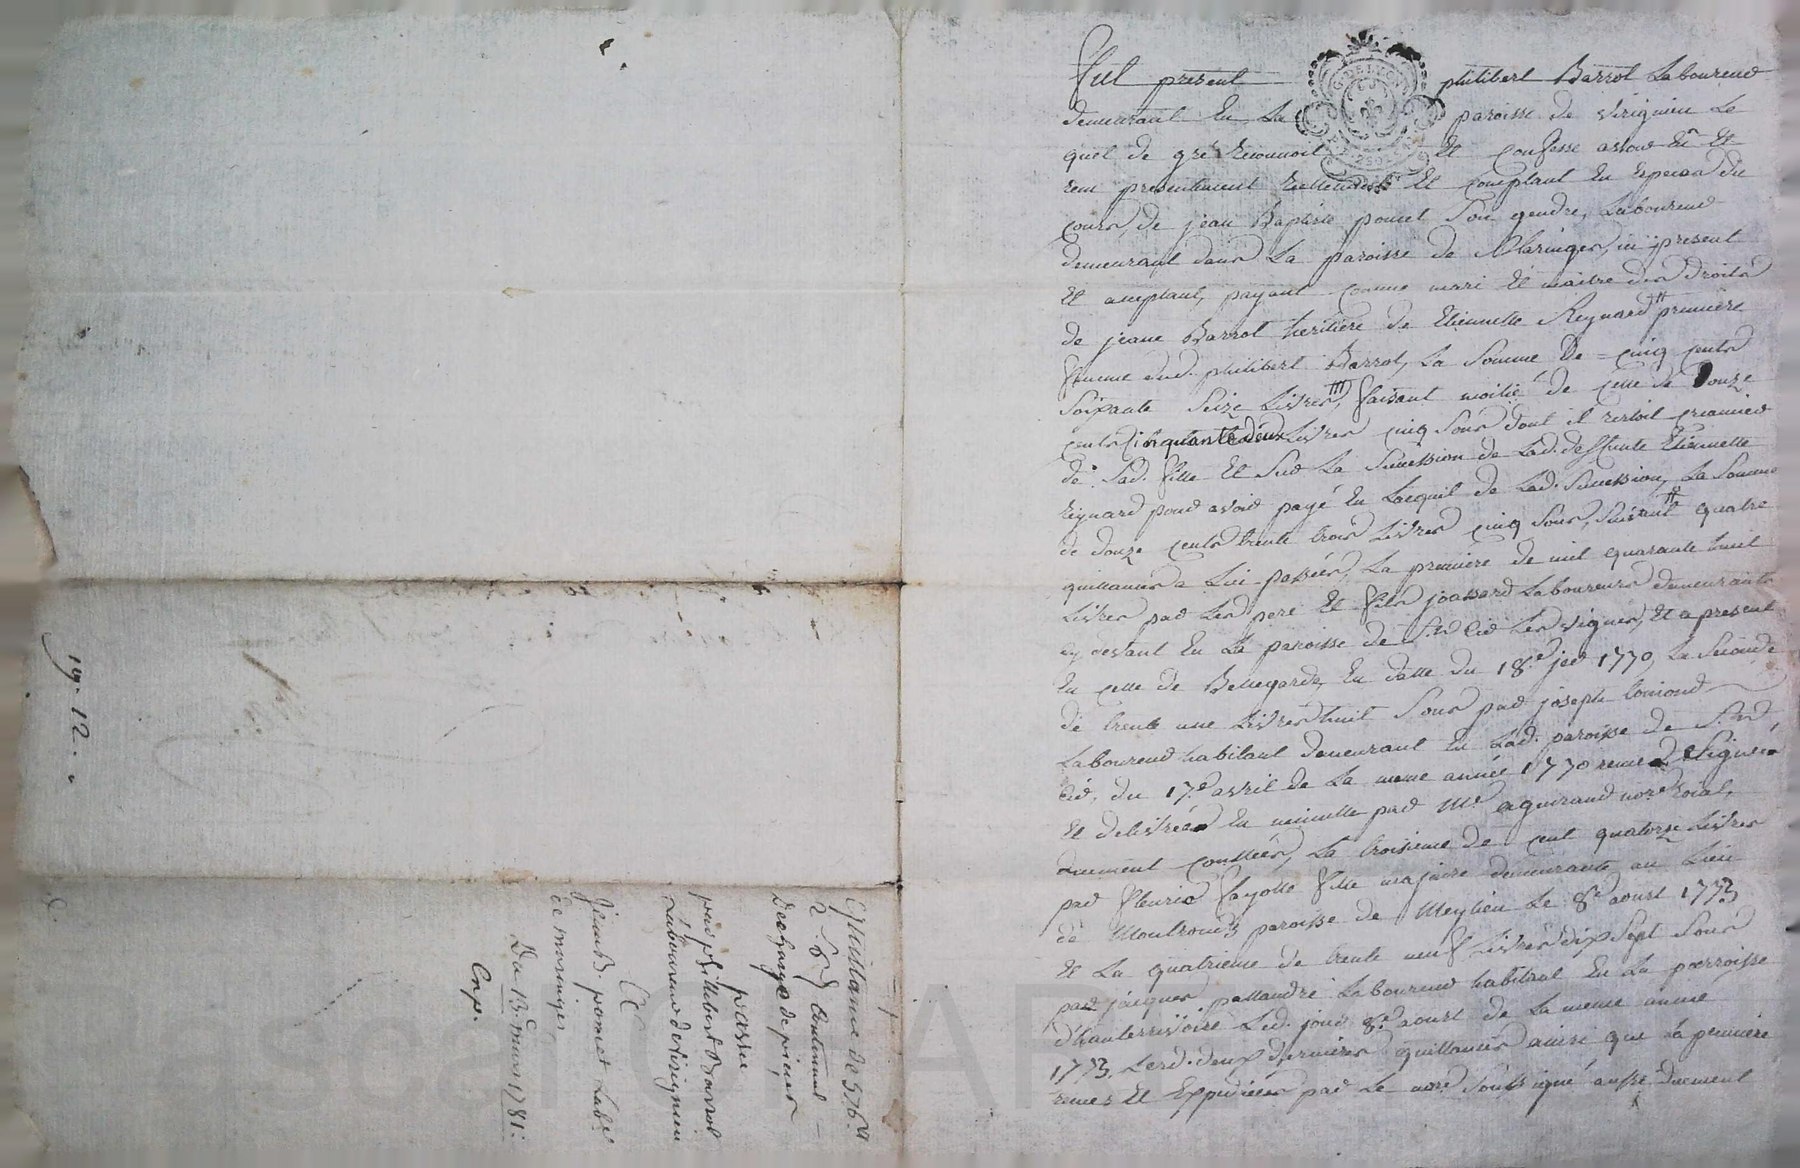 Fut present philibert Barrot Laboureur
demeurant en La paroisse de virignieu Le
quel de gré reconnoit Et confesse avoir eu Et
receu presentement reellement Et comptant en Especes du
cours, de jean Baptiste poncet Son gendre, Laboureur
demeurant dans La paroisse de Maringes, ici present
Et acceptant, payant comme mari Et maitre des droits
de jeane Barrot heritiere de Etiennette Reynard premiere
femme dud. philibert Barrot, La Somme De = cinq cents
Soixante Seize Livres, faisant moitié de celle de Douze
cents Cinquante deux Livres cinq Sous dont il restoit creancier
de Sad. fille Et Sur La Succession de Lad. deffunte Etiennette
Reynard pour avoir payé En Lacquit de Lad. Succession, La Somme
de douze cents trente trois Livres cinq Sous, Suivant quatre
quittances a Lui passées, La premiere de mil quarante huit
Livres par Les pere Et fils joassard Laboureurs demeurants
cy devant En La paroisse de St. Cir Les vignes, Et a present
En celle de Bellegarde, En datte du 18e. jer 1770, La Seconde
de trente une Livres huit Sous par joseph
Laboureur habitant demeurant En Lad. paroisse de St.
Cir, du 17e avril de La meme année 1770 Signées
Et delivrées En minutte par Me. aguiraud nore. Roial,
duement La troisieme de cent quatorze Livres
par fleurie fayolle fille majeure demeurante au Lieu
de Montrond paroisse de Meylieu Le 8e aoust 1773
Et La quatrieme de trente neuf Livres dix Sept Sous
par jacques pallandre Laboureur habitant En La parroisse
d'hauterivoire Led. jour 8e. aoust de La meme année
1773, Lesd. deux dernieres quittances ainsi que La premiere
receues Et Expediées par Le nore Soussigné aussi duement
Quittance de 576 #
contenant
decharge de pieces
passée
par phillibert Barrot
Laboureur de virignieu
a
jean B. poncet Labr.
de maringes
Du 13e mars 1781.
Exp.
19. 12.